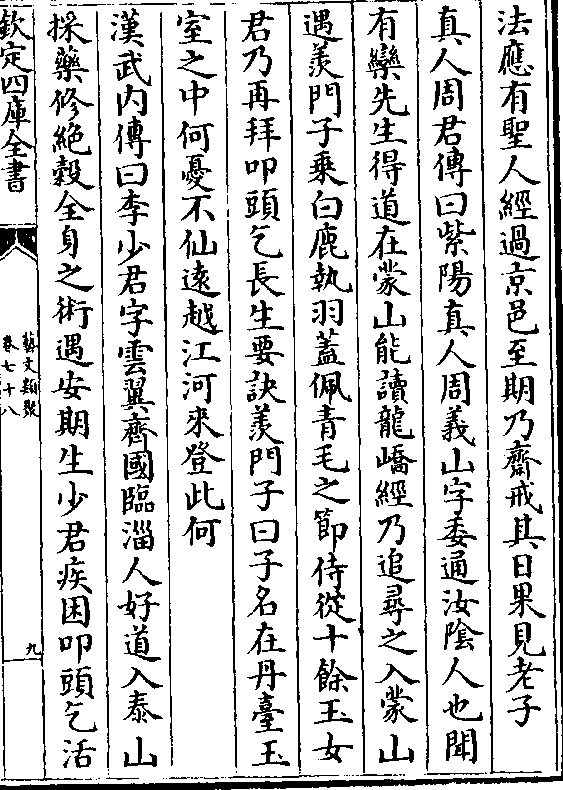 法應有聖人經過京邑至期乃齋戒其日果見老子
真人周君傳曰紫陽真人周義山字委通汝陰人也聞
有欒先生得道在蒙山能讀龍嶠經乃追尋之入蒙山
遇羨門子乘白鹿執羽蓋佩青毛之節侍從十餘玉女
君乃再拜叩頭乞長生要訣羨門子曰子名在丹臺玉
室之中何憂不仙遠越江河來登此何
漢武内傳曰李少君字雲翼齊國臨淄人好道入泰山
採藥修絶穀全身之術遇安期生少君疾困叩頭乞活
欽定四庫全書
藝文類聚
卷七十八
九